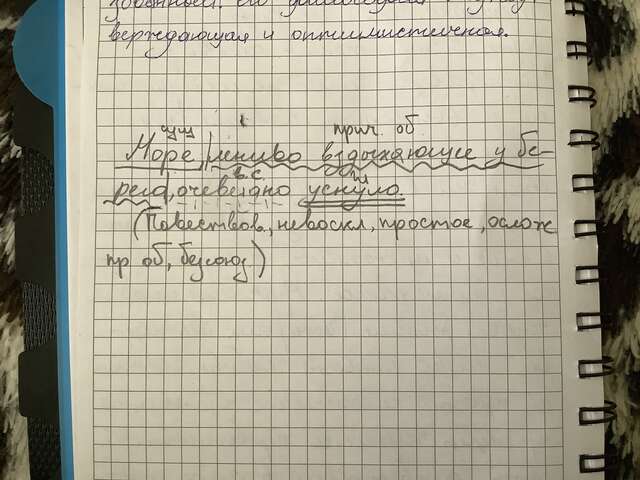 вержdающая и оптимистичная.
сущ прич. об
Море, лениво вздыхающее у бе-
в.с
рега, очевидно уснуло.
(Повествов, невоскл, простое, ослож
пр об, безсоюз)